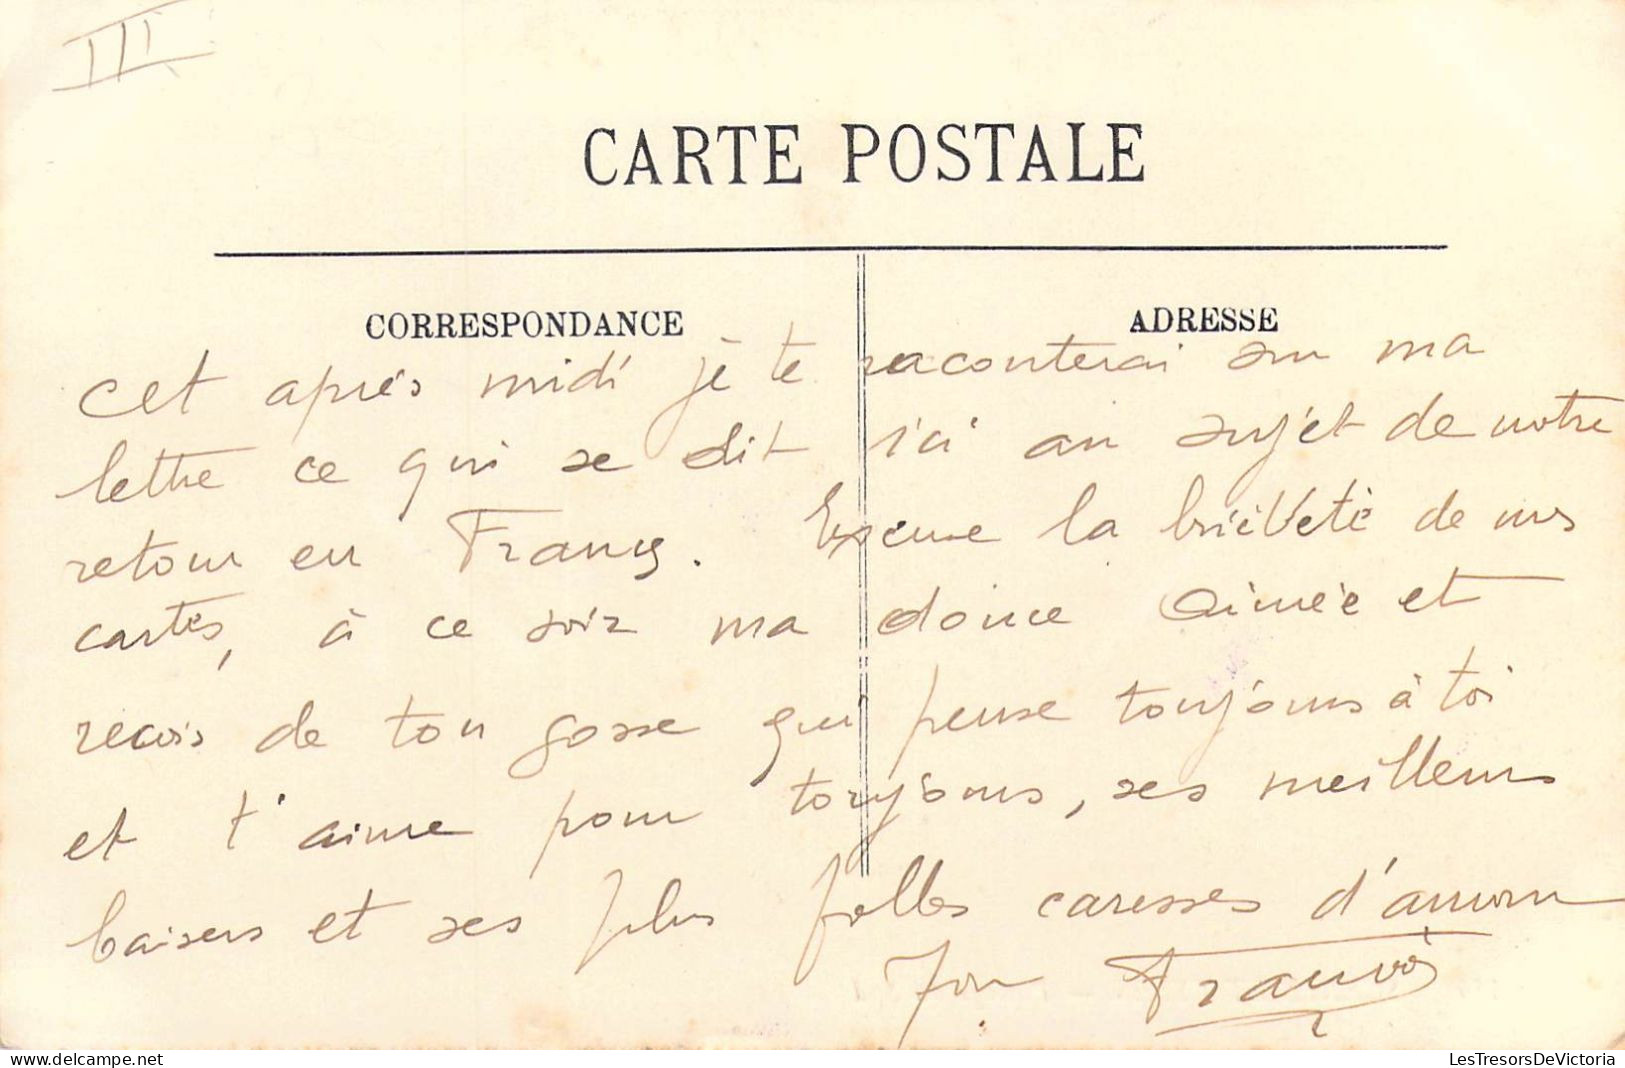 III
CARTE POSTALE
CORRESPONDANCE
ADRESSE
Cet après midi je te raconterai sur ma
lettre ce qui se dit ici au sujet de notre
retour en France. Excuse la brièveté de mes
cartes, à ce soir ma douce Aimée et
recois de ton gosse qui pense toujours à toi
et t'aime pour toujours, ses meilleurs
baisers et ses plus folles caresses d'amour
Ton François
LesTresorsDeVictoria